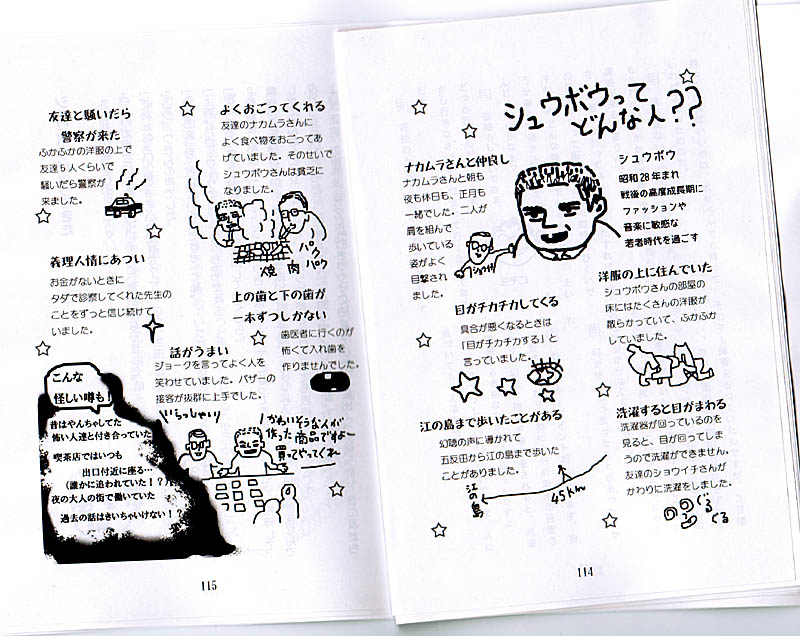 シュウボウって
どんな人??
シュウボウ
昭和28年まれ
戦後の高度成長期に
ファッションや
音楽に敏感な
若者時代を過ごす
ナカムラさんと仲良し
ナカムラさんと朝も
夜も休日も、正月も
一緒でした。二人が
肩を組んで
歩いている
姿がよく
目撃され
ました。
洋服の上に住んでいた
シュウボウさんの部屋の
床にはたくさんの洋服が
散らかっていて、ふかふか
していました。
目がチカチカしてくる
具合が悪くなるときは
「目がチカチカする」と
言っていました。
洗濯すると目がまわる
洗濯器が回っているのを
見ると、目が回ってしま
うので洗濯ができません。
友達のショウイチさんが
かわりに洗濯をしました。
ぐる
ぐる
江の島まで歩いたことがある
幻聴の声に導かれて
五反田から江の島まで歩いた
ことがありました。
江の島
45km
114
よくおごってくれる
友達のナカムラさんに
よく食べ物をおごってあ
げていました。そのせいで
シュウボウさんは貧乏に
なりました。
焼肉
パク
パク
友達と騒いだら
警察が来た
ふかふかの洋服の上で
友達5人くらいで
騒いだら警察が
来ました。
義理人情にあつい
お金がないときに
タダで診察してくれた先生の
ことをずっと信じ続けて
いました。
上の歯と下の歯が
一本ずつしかない
歯医者に行くのが
怖くて入れ歯を
作りませんでした。
話がうまい
ジョークを言ってよく人を
笑わせていました。バザーの
接客が抜群に上手でした。
いらっしゃい
かわいそうな人が
作った商品ですよー
買ってやってくれ
こんな
怪しい噂も!
昔はやんちゃしてた
怖い人達と付き合っていた
喫茶店ではいつも
出口付近に座る…
(誰かに追われていた!?)
夜の大人の街で働いていた
過去の話はきいちゃいけない!?
115